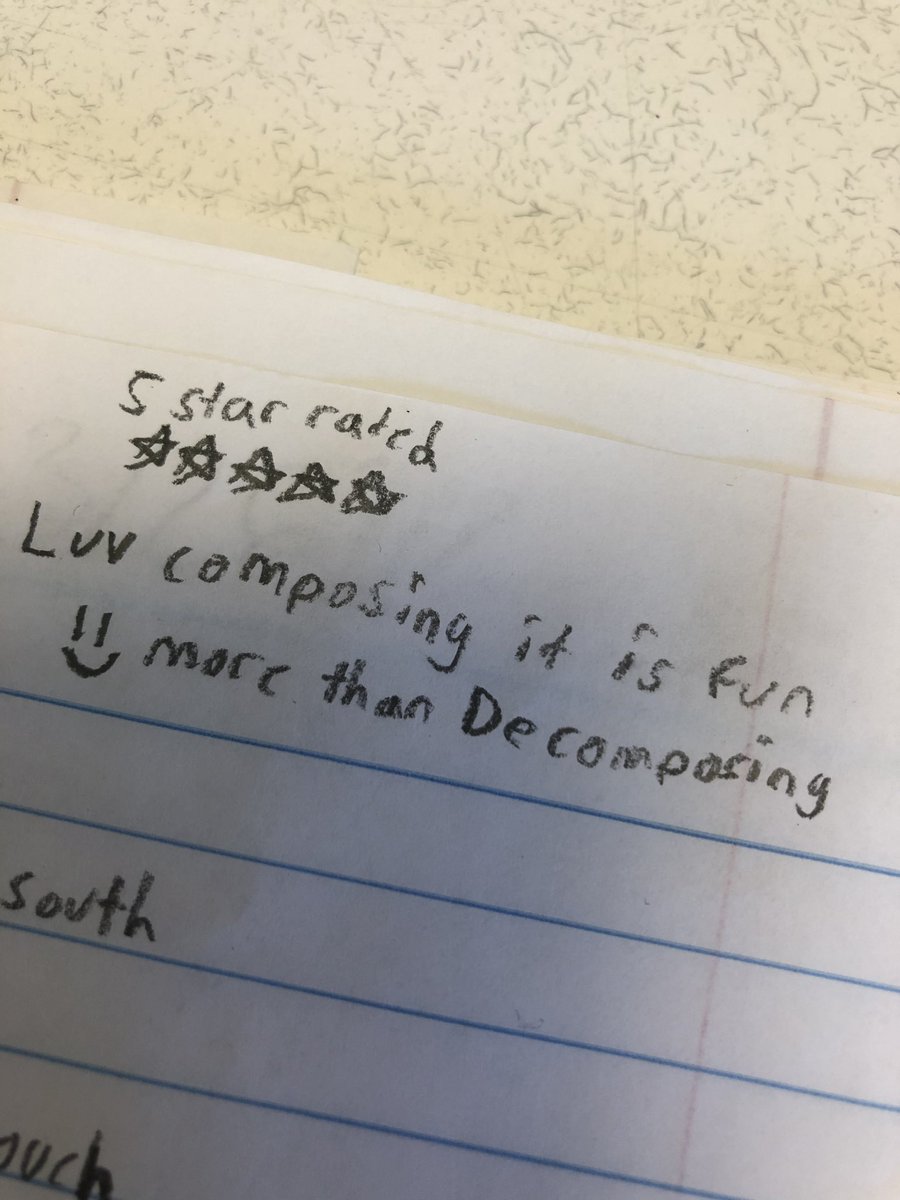 5 star rated
☆☆☆☆☆
Luv composing it is fun
more than Decomposing
south
ouch